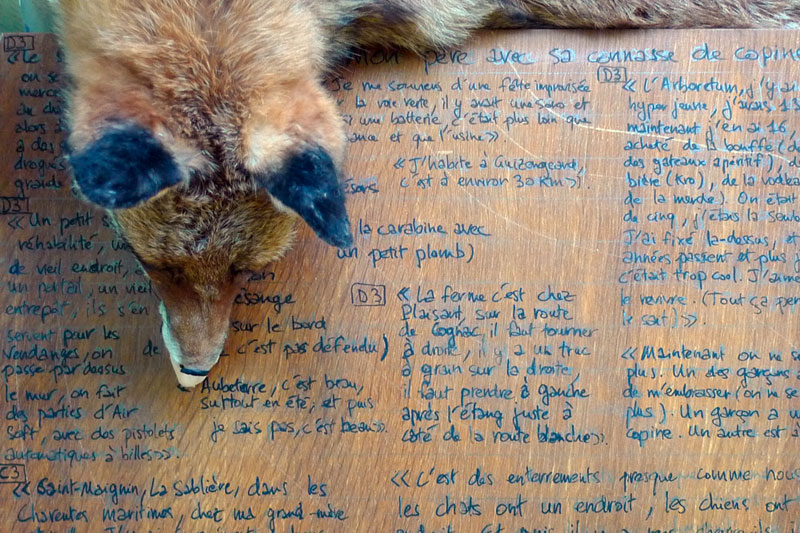 D3
« Le s
on se
merc
au du
alors à
a des
drogués
grands
mon père avec sa connasse de copine
Je me souviens d'une fête improvisée
sur la voie verte, il y avait une sono et
si une batterie c'était plus loin que
ance et que l'usine »
« J'habite à Guizengeard,
c'est à environ 30 km ».
ésors
la carabine avec
un petit plomb)
D3
« L'Arboretum, j'y av
hyper jeune, j'avais 13
maintenant j'en ai 16,
acheté de la bouffe (de
des gateaux apéritif), d
bière (Kro), de la vodka
de la merde). On était
de cinq, j'étais la seule
J'ai fixé la-dessus, et
années passent et plus j
c'était trop cool. J'aime
le revivre. (Tout ça per
le sait) ».
D3
« Un petit s
réhabilité, un
de vieil endroit,
un portail, un vieil
entrepôt, ils s'en
servent pour les
Vendanges, on
passe par dessus
le mur, on fait
des parties d'Air
Soft, avec des pistolets
automatiques à billes »
on
ésange
sur le bord
de c'est pas défendu)
Aubeterre, c'est beau,
surtout en été, et puis
je sais pas, c'est beau ».
D3
« La ferme c'est chez
Plaisant, sur la route
de Cognac il faut tourner
à droite, il y a un truc
à grain sur la droite,
il faut prendre à gauche
après l'étang juste à
côté de la route blanche ».
« Maintenant on ne se
plus. Un des garçons a
de m'embrasser (on ne se
plus). Un garçon a u
copine. Un autre est
C3
« Saint-Maignin, La Sablière, dans les
Charentes maritimes, chez ma grand-mère
« C'est des enterrements presque comme nous
les chats ont un endroit, les chiens ont